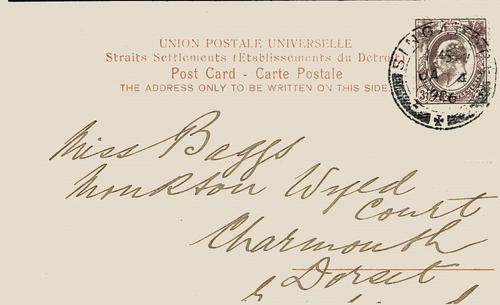 UNION POSTALE UNIVERSELLE
Straits Settlements (Etablissements du Detro
Post Card - Carte Postale
THE ADDRESS ONLY TO BE WRITTEN ON THIS SIDE
SINGAPORE
Miss Baggs
Monkton Wyld
Court
Charmouth
Dorset